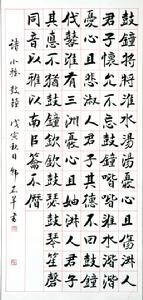 鼓鐘將將淮水湯湯憂心且傷淑人
君子懷允不忘鼓鐘喈喈淮水湝湝
憂心且悲淑人君子其德不回鼓鐘
伐鼛淮有三洲憂心且妯淑人君子
其德不猶鼓鐘欽欽鼓瑟鼓琴笙磬
同音以雅以南以籥不僭
詩小雅鼓鐘 戊寅秋日 書